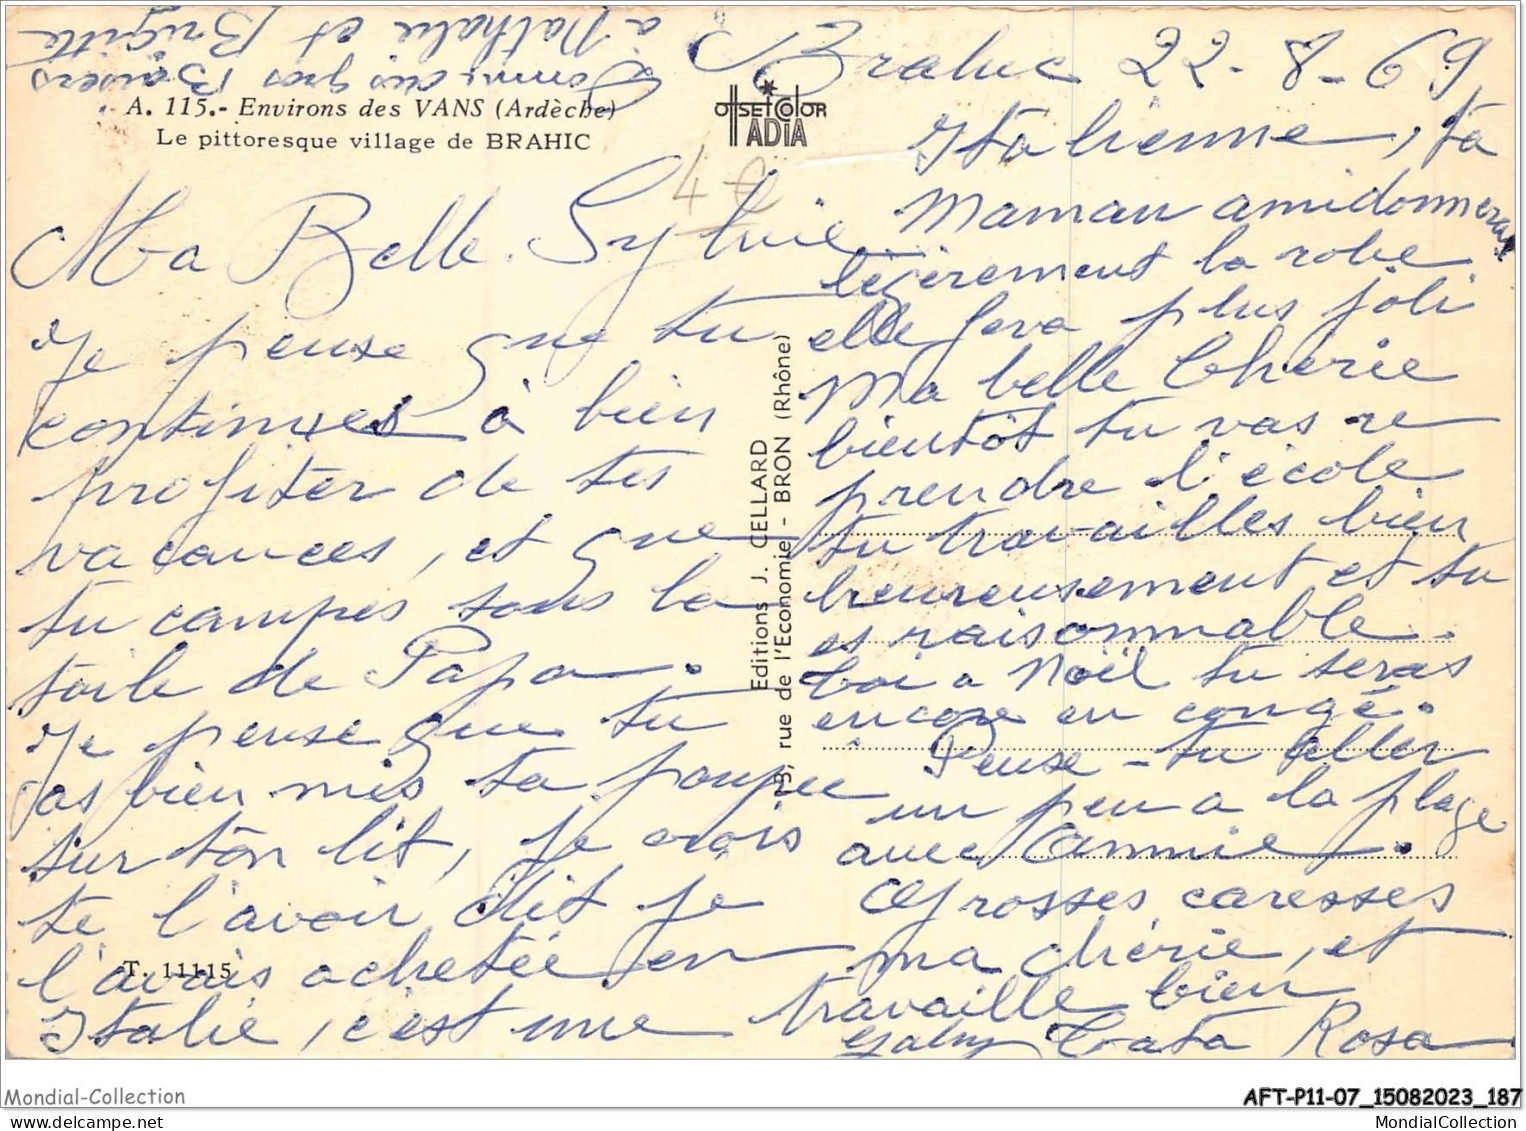 Brahic 22-8-69
A. 115.- Environs des VANS (Ardèche)
Le pittoresque village de BRAHIC
OffSETCOLOR
ADIA
4 €
Ma Belle Sylvie
Je pense que tu
continues à bien
profiter de tes
vacances, et que
tu campes sous la
toile de Papa.
Je pense que tu
as bien mis ta poupée
sur ton lit, je crois
te l'avoir dit je
l'avais achetée en
Italie, c'est une
Italienne, ta
Maman amidonnera
légèrement la robe
elle fera plus joli
Ma belle Chérie
bientôt tu vas re
prendre l'école
tu travailles bien
heureusement et tu
es raisonnable.
toi a Noël tu seras
encore en congé.
Pense-tu aller
un peu a la plage
avec Annie.
Grosses caresses
ma chérie, et
travaille bien
Tata Rosa
Donne des gros Baisers
a Nathalie et Brigitte
Editions J. CELLARD
, rue de l'Economie - BRON (Rhône)
T. 11115
Mondial-Collection
AFT-P11-07_15082023_187
MondialCollection